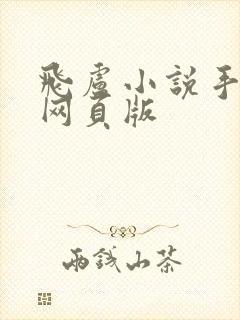 飛盧小説手
网頁版
兩錢山茶